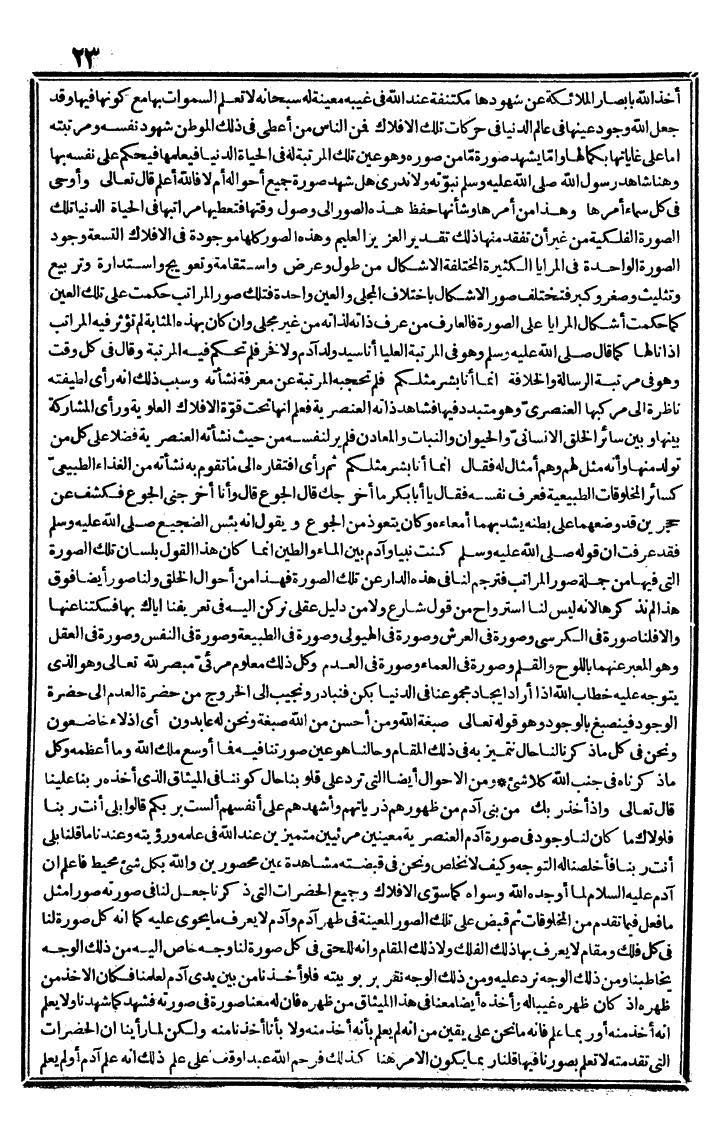 ٢٣
أخذ الله بابصار الملائكة عن شهودها مكتنفة عند الله فى غيبه معينة له سبحانه لا تعلم السموات بها مع كونها فيها وقد
جعل الله وجود عينها فى عالم الدنيا فى حركات تلك الافلاك فمن الناس من أعطى فى ذلك الموطن شهود نفسه ومرتبته
اما على غاياتها بكمالها واما يشهد صورة مّا من صوره وهو عين تلك المرتبة له فى الحياة الدنيا فيعلمها فيحكم على نفسه بها
وهنا شاهد رسول الله صلى الله عليه وسلم نبوّته ولا ندرى هل شهد صورة جميع أحواله أم لا فالله أعلم قال تعالى وأوحى
فى كل سماء أمرها وهذا من أمرها وشأنها حفظ هذه الصور الى وصول وقتها فتعطيها مراتبها فى الحياة الدنيا تلك
الصورة الفلكية من غير أن تفقد منها ذلك تقدير العزيز العليم وهذه الصور كلها موجودة فى الافلاك التسعة وجود
الصورة الواحدة فى المرايا الكثيرة المختلفة الاشكال من طول وعرض واستقامة وتعويج واستدارة وتربيع
وتثليث وصغر وكبر فتختلف صور الاشكال باختلاف المجلى والعين واحدة فتلك صور المراتب حكمت على تلك العين
كما حكمت أشكال المرايا على الصورة فالعارف من عرف ذاته لذاته من غير مجلى وان كان بهذه المثابة لم تؤثر فيه المراتب
اذا نالها كما قال صلى الله عليه وسلم وهو فى المرتبة العليا أنا سيد ولد آدم ولا فخر فلم تحكم فيه المرتبة وقال فى كل وقت
وهو فى مرتبة الرسالة والخلافة انما أنا بشر مثلكم فلم تحجبه المرتبة عن معرفة نشأته وسبب ذلك انه رأى لطيفته
ناظرة الى مركبها العنصرىّ وهو متبدد فيها فشاهد ذاته العنصرية فعلم انها تحت قوّة الافلاك العلوية ورأى المشاركة
بينها وبين سائر الخلق الانسانىّ والحيوان والنبات والمعادن فلم ير لنفسه من حيث نشأته العنصرية فضلا على كل من
تولد منها وأنه مثل لهم وهم أمثال له فقال انما أنا بشر مثلكم ثم رأى افتقاره الى ما تقوم به نشأته من الغذاء الطبيعىّ
كسائر المخلوقات الطبيعية فعرف نفسه فقال يا أبا بكر ما أخرجك قال الجوع قال وأنا أخرجنى الجوع فكشف عن
حجرين قد وضعهما على بطنه يشد بهما أمعاءه وكان يتعوذ من الجوع ويقول انه بئس الضجيع صلى الله عليه وسلم
فقد عرفت ان قوله صلى الله عليه وسلم كنت نبيا وآدم بين الماء والطين انما كان هذا القول بلسان تلك الصورة
التى فيها من جملة صور المراتب فترجم لنا فى هذه الدار عن تلك الصورة فهذا من أحوال الخلق ولنا صور أيضا فوق
هذا لم نذكرها لانه ليس لنا استرواح من قول شارع ولا من دليل عقلى نركن اليه فى تعريفنا اياك بها فسكتنا عنها
والا فلنا صورة فى الكرسى وصورة فى العرش وصورة فى الهيولى وصورة فى الطبيعة وصورة فى النفس وصورة فى العقل
وهو المعبر عنهما باللوح والقلم وصورة فى العماء وصورة فى العدم وكل ذلك معلوم مرئىّ مبصر لله تعالى وهو الذى
يتوجه عليه خطاب الله اذا أراد ايجاد مجموعنا فى الدنيا بكن فنبادر ونجيب الى الخروج من حضرة العدم الى حضرة
الوجود فينصبغ بالوجود وهو قوله تعالى صبغة الله ومن أحسن من الله صبغة ونحن له عابدون أى اذلاء خاضعون
ونحن فى كل ما ذكرنا لنا حال نتميز به فى ذلك المقام وحالنا هو عين صورتنا فيه فما أوسع ملك الله وما أعظمه وكل
ما ذكرناه فى جنب الله كلاشئ * ومن الاحوال أيضا التى ترد على قلوبنا حال كوننا فى الميثاق الذى أخذه ربنا علينا
قال تعالى واذ أخذ ربك من بنى آدم من ظهورهم ذرياتهم وأشهدهم على أنفسهم ألست بربكم قالوا بلى أنت ربنا
فلولاك ما كان لنا وجود فى صورة آدم العنصرية معينين مرئيين متميزين عند الله فى علمه ورؤيته وعندنا ما قلنا بلى
أنت ربنا فأخلصنا له التوجه وكيف لا نخلص ونحن فى قبضته مشاهدة عين محصورين والله بكل شئ محيط فاعلم ان
آدم عليه السلام لما أوجده الله وسواه كما سوّى الافلاك وجميع الحضرات التى ذكرنا جعل لنا فى صورته صورا مثل
ما فعل فيما تقدم من المخلوقات ثم قبض على تلك الصور المعينة فى ظهر آدم وآدم لا يعرف ما يحوى عليه كما انه كل صورة لنا
فى كل فلك ومقام لا يعرف بها ذلك الفلك ولا ذلك المقام وانه للحق فى كل صورة لنا وجه خاص اليه من ذلك الوجه
يخاطبنا ومن ذلك الوجه نرد عليه ومن ذلك الوجه نقر بربوبيته فلو أخذنا من بين يدى آدم لعلمنا فكان الاخذ من
ظهره اذ كان ظهره غيبا له وأخذه أيضا معنا فى هذا الميثاق من ظهره فان له معنا صورة فى صورته فشهد كما شهدنا ولا يعلم
انه أخذ منه أو ربما علم فانه ما نحن على يقين من انه لم يعلم بأنه أخذ منه ولا بأنا أخذنا منه ولكن لما رأينا ان الحضرات
التى تقدمته لا تعلم بصورنا فيها قلنا ربما يكون الامر هنا كذلك فرحم الله عبدا وقف على علم ذلك انه علم آدم أو لم يعلم